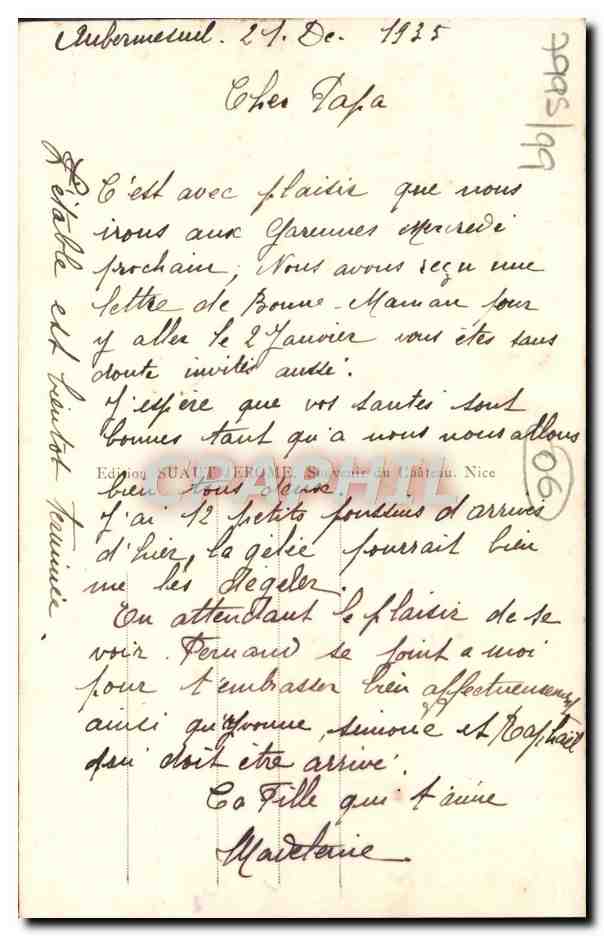 Aubermesnil. 21. De. 1935
Cher Papa
C'est avec plaisir que nous
irons aux Garennes Mercredi
prochain, Nous avons reçu une
lettre de Bonne-Maman pour
y aller le 2 Janvier vous êtes sans
doute invités aussi.
J'espère que vos santés sont
bonnes tant qu'a nous nous allons
Edition SUAUT JEROME. Souvenir du Château. Nice
CRAPHIL
bien tous deux.
J'ai 12 petits poussins d'arrivés
d'hier, la gelée pourrait bien
me les dégeler.
En attendant le plaisir de se
voir. Fernand se joint a moi
pour t'embrasser bien affectueusement
ainsi qu'Yvonne, Simone et Raphaël
qui doit être arrivé.
Ta Fille qui t'aime
Madeleine
L'étable est bientot terminée.
7995/99
06